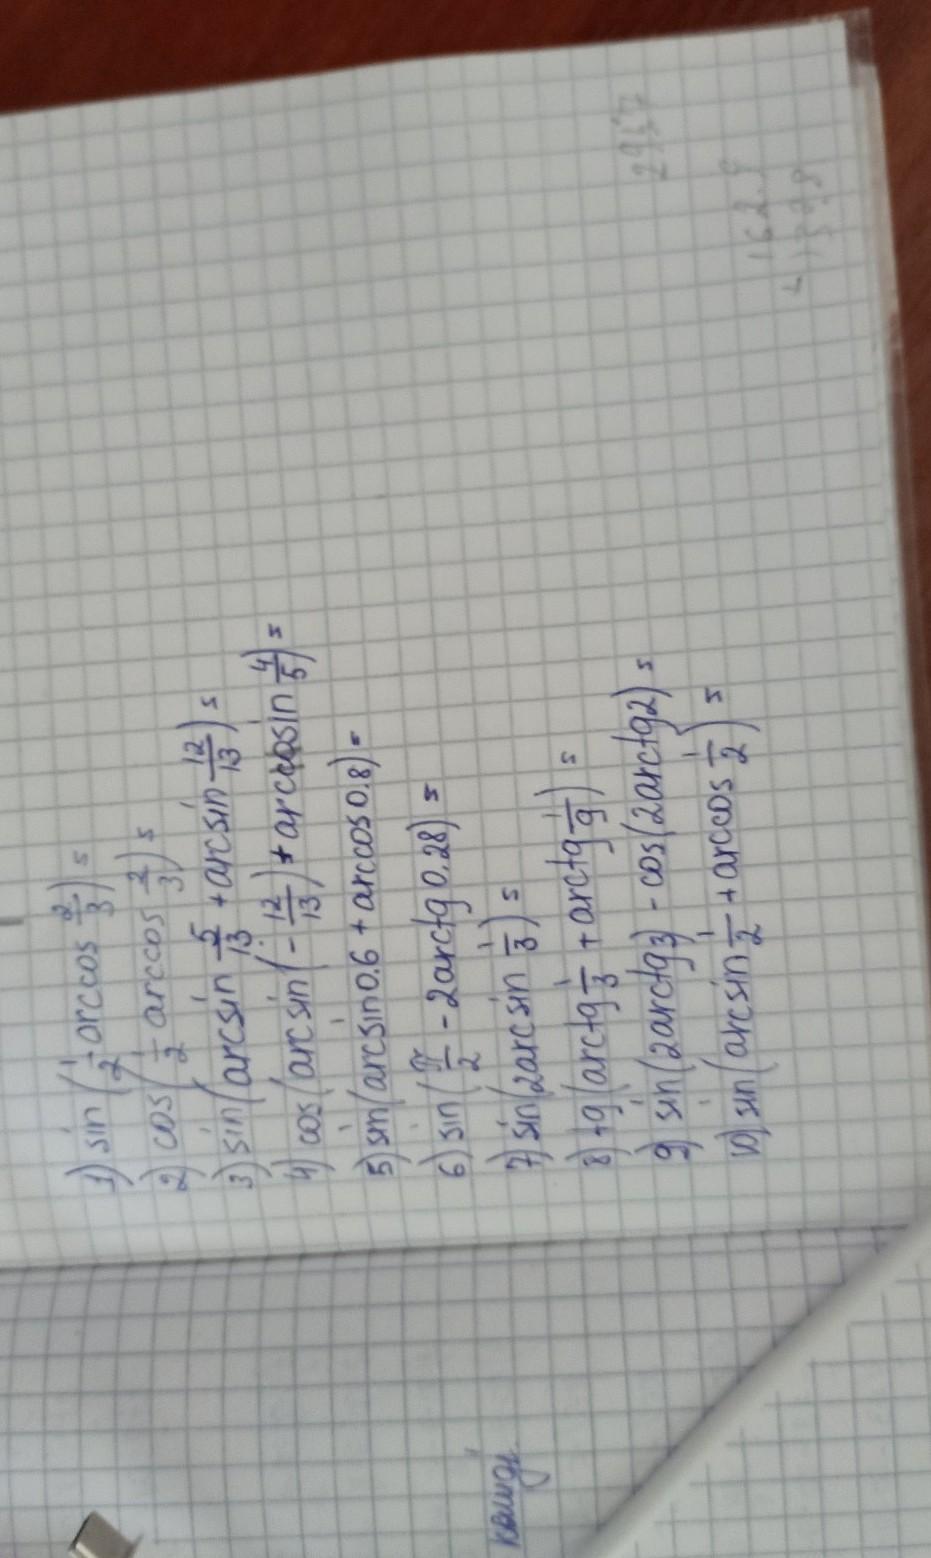 1) sin(1/2 arccos 2/3) =
2) cos(1/2 arccos 2/3) =
3) sin(arcsin 5/13 + arcsin 12/13) =
4) cos(arcsin(-12/13) + arcsin 4/5) =
5) sin(arcsin 0.6 + arccos 0.8) =
6) sin(π/2 - 2arctg 0.28) =
7) sin(2arcsin 1/3) =
8) tg(arctg 1/3 + arctg 1/9) =
9) sin(2arctg 3) - cos(2arctg 2) =
10) sin(arcsin 1/2 + arccos 1/2) =